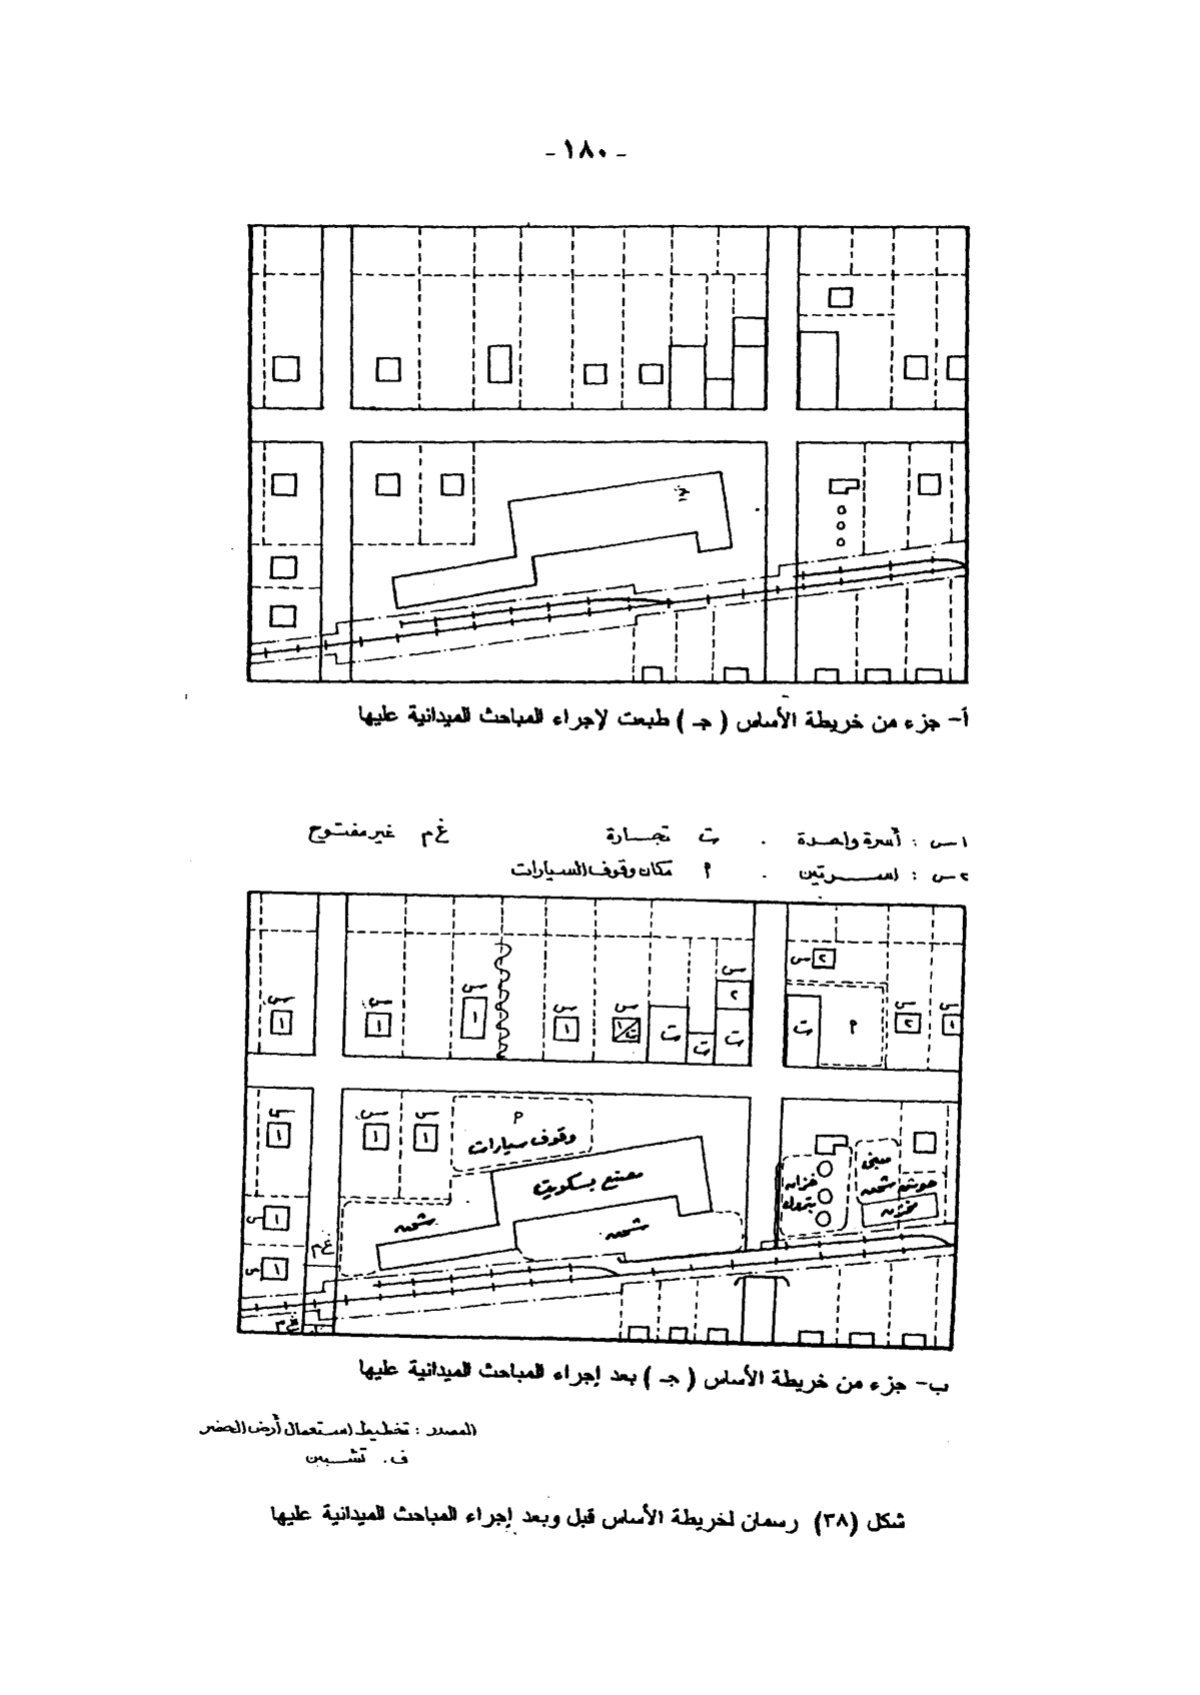 - ١٨٠ -
أ- جزء من خريطة الأساس ( جـ ) طبعت لإجراء المباحث الميدانية عليها
١س : أسرة واحدة . ت تجارة غ م غير مفتوح
٢س : أسرتين . م مكان وقوف السيارات
س ٢
س
٢
س
١
س
١
س
١
س
١
س
١/ت
ت
ت
ت
س
٢
ت
م
س
٢
س
١
س
١
س
١
س
١
م
وقوف سيارات
مصنع بسكويت
شحن
شحن
خزان
بترول
مبنى
حوش شحن
مخزن
س ١
س ١
غ م
غ م
ب- جزء من خريطة الأساس ( جـ ) بعد إجراء المباحث الميدانية عليها
المصدر : تخطيط استعمال أرض الحضر
ف . تشبين
شكل (٣٨) رسمان لخريطة الأساس قبل وبعد إجراء المباحث الميدانية عليها